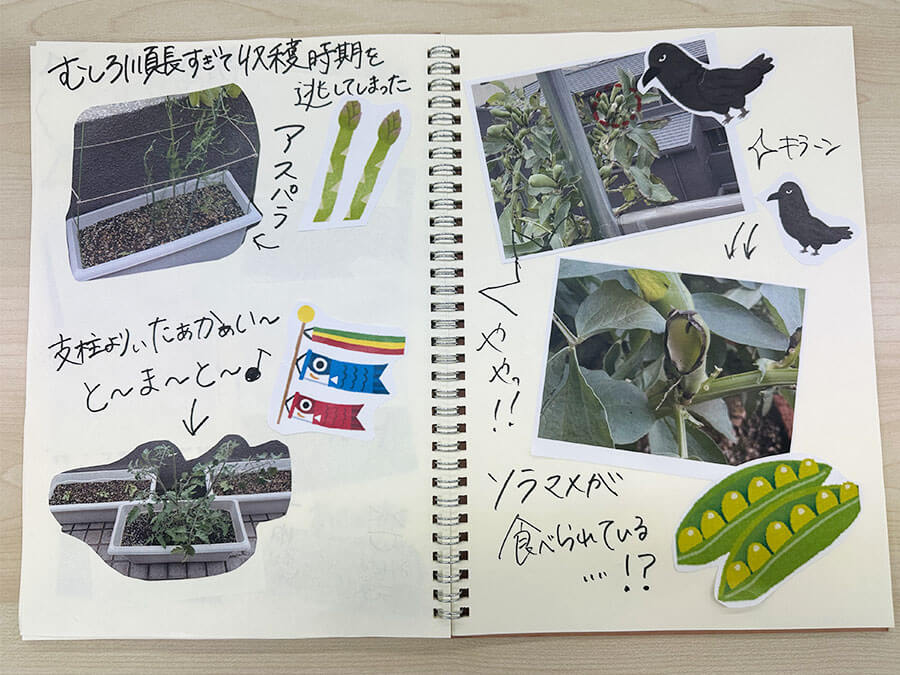 むしろ順長すぎて収穫時期を
逃してしまった
アスパラ
支柱よりぃたぁかぁい〜
と〜ま〜と〜♪
キラーン
ややっ!!
ソラマメが
食べられている
....!?